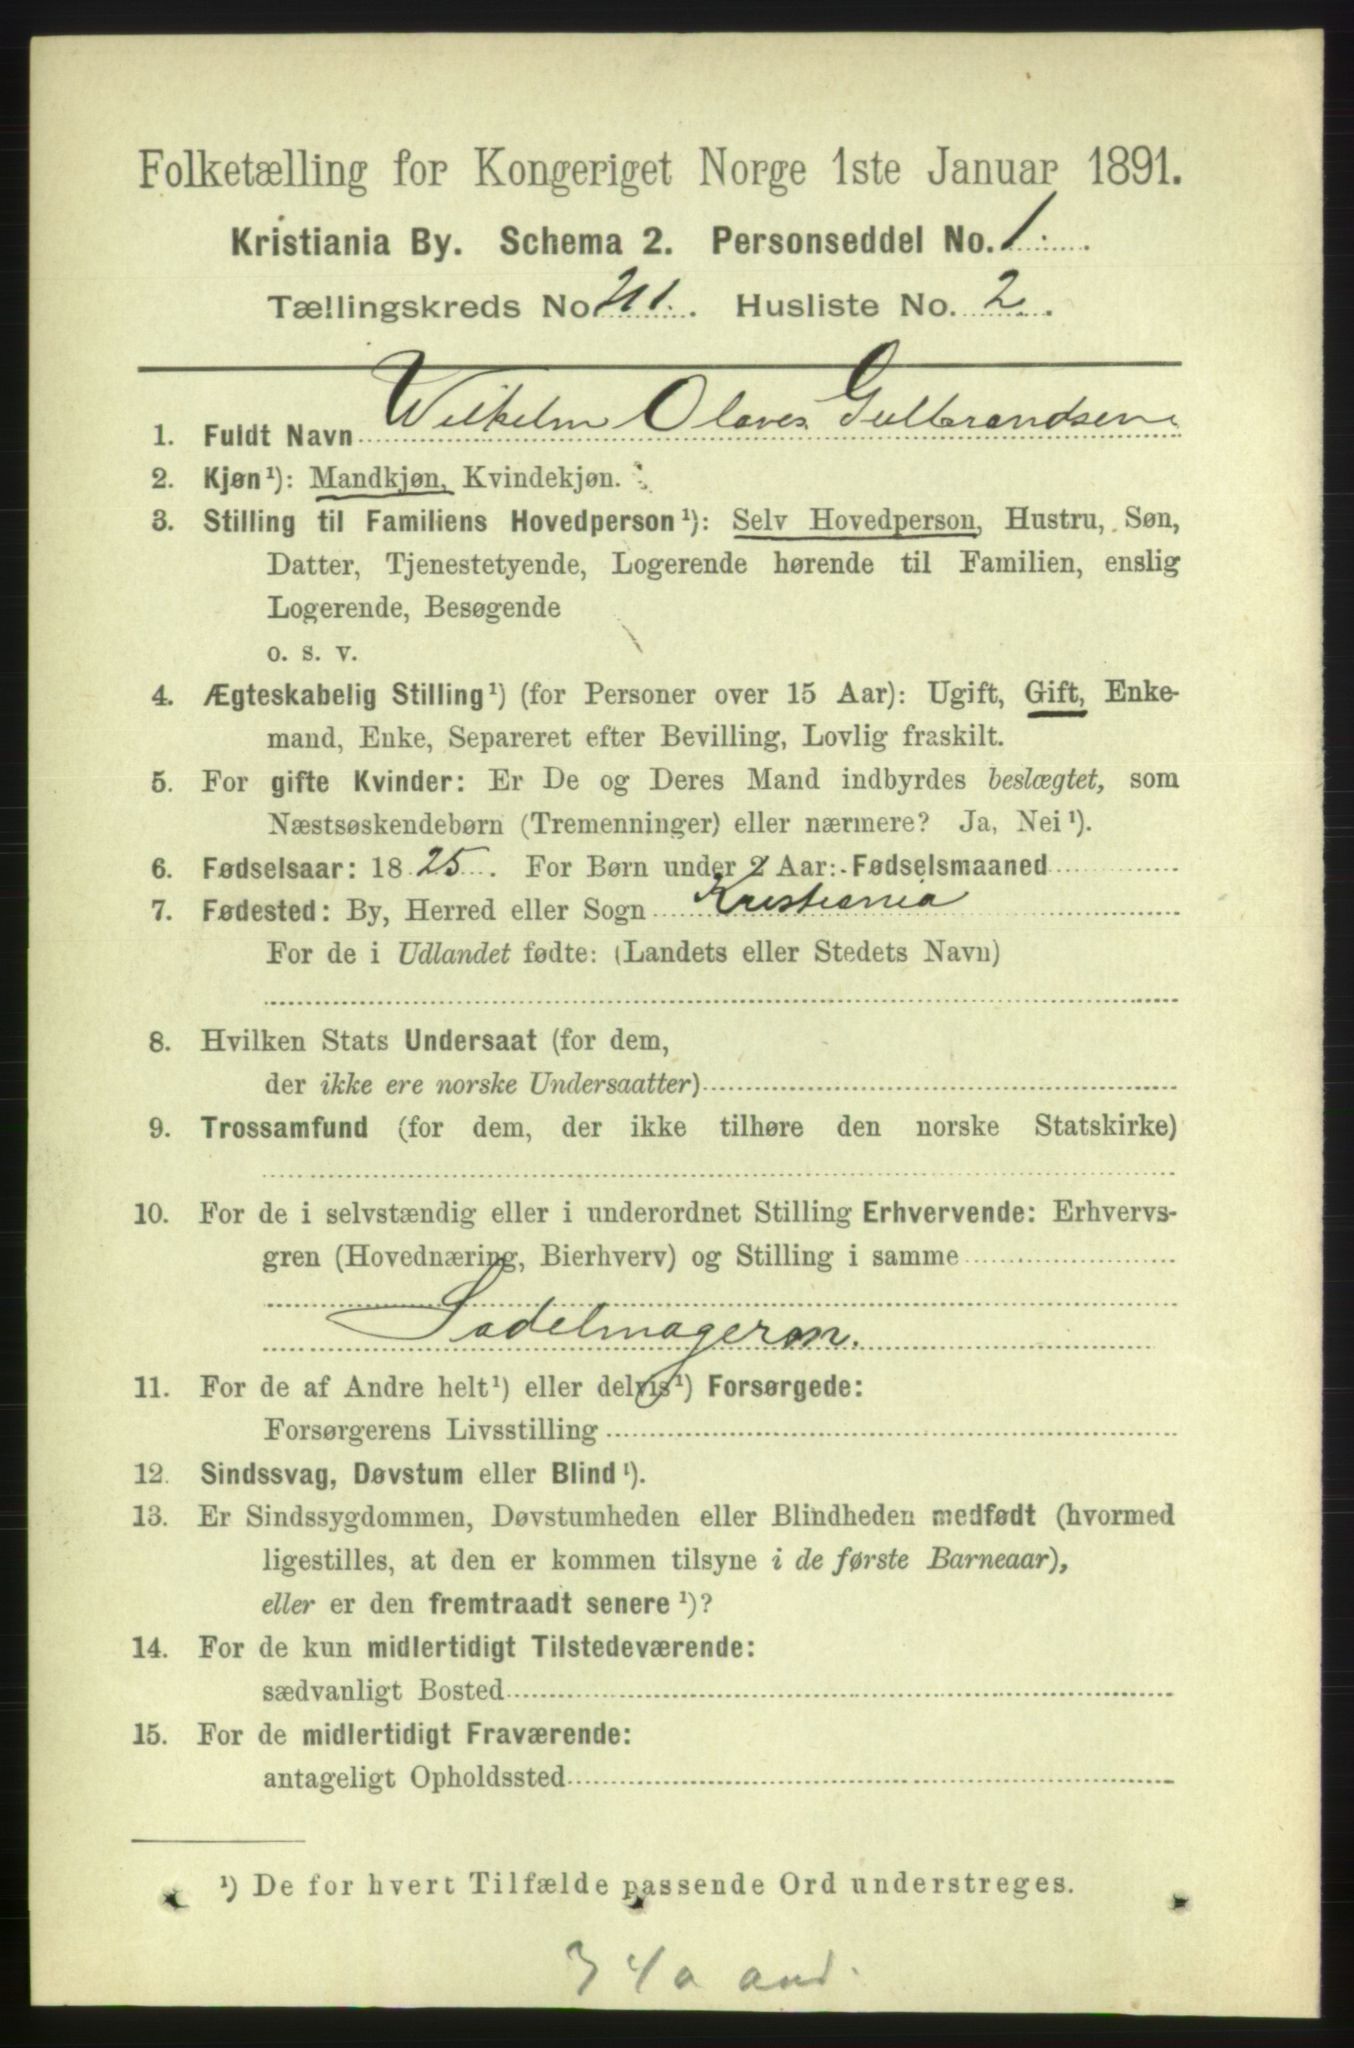 Folketælling for Kongeriget Norge 1ste Januar 1891.
Kristiania By. Schema 2. Personseddel No. 1.
Tællingskreds No. 211. Husliste No. 2.
1. Fuldt Navn Wilhelm Olaves Gulbrandsen
2. Kjøn¹): Mandkjøn, Kvindekjøn.
3. Stilling til Familiens Hovedperson¹): Selv Hovedperson, Hustru, Søn,
Datter, Tjenestetyende, Logerende hørende til Familien, enslig
Logerende, Besøgende
o. s. v.
4. Ægteskabelig Stilling¹) (for Personer over 15 Aar): Ugift, Gift, Enke-
mand, Enke, Separeret efter Bevilling, Lovlig fraskilt.
5. For gifte Kvinder: Er De og Deres Mand indbyrdes beslægtet, som
Næstsøskendebørn (Tremenninger) eller nærmere? Ja, Nei¹).
6. Fødselsaar: 1825. For Børn under 2 Aar: Fødselsmaaned
7. Fødested: By, Herred eller Sogn Kristiania
For de i Udlandet fødte: (Landets eller Stedets Navn)
8. Hvilken Stats Undersaat (for dem,
der ikke ere norske Undersaatter)
9. Trossamfund (for dem, der ikke tilhøre den norske Statskirke)
10. For de i selvstændig eller i underordnet Stilling Erhvervende: Erhvervs-
gren (Hovednæring, Bierhverv) og Stilling i samme
Sadelmager
11. For de af Andre helt¹) eller delvis¹) Forsørgede:
Forsørgerens Livsstilling
12. Sindssvag, Døvstum eller Blind¹).
13. Er Sindssygdommen, Døvstumheden eller Blindheden medfødt (hvormed
ligestilles, at den er kommen tilsyne i de første Barneaar),
eller er den fremtraadt senere¹)?
14. For de kun midlertidigt Tilstedeværende:
sædvanligt Bosted
15. For de midlertidigt Fraværende:
antageligt Opholdssted
¹) De for hvert Tilfælde passende Ord understreges.